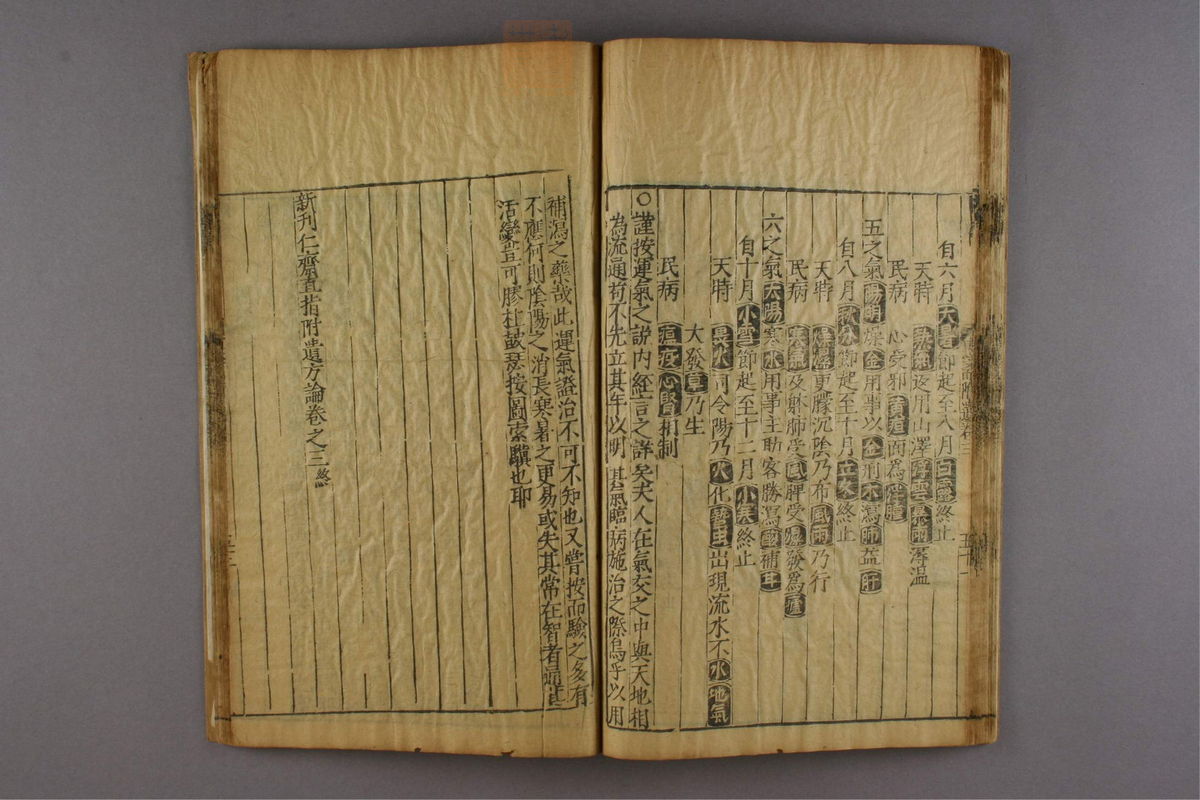 自六月大暑節起至八月白露終止
天時　熱氣返用山澤浮雲暴雨溽溫
民病　心受邪黃疸而為胕腫
五之氣陽明燥金用事以金刑木瀉肺益肝
自八月秋分節起至十月立冬終止
天時　燥濕更朦沉陰乃布風雨乃行
民病　寒氣及躰肺受風脾受濕發為瘧
六之氣太陽寒水用事主助客勝瀉酸補耳
自十月小雪節起至十二月小寒終止
天時　畏火司令陽乃火化蟄虫出現流水不氷地氣
大發草乃生
民病　瘟疫心腎相制
○謹按運氣之說內經言之詳矣夫人在氣交之中與天地相
為流通苟不先立其年以明其氣臨病施治之際烏乎以用
補瀉之藥哉此運氣證治不可不知也又嘗按而驗之多有
不應何則陰陽之消長寒暑之更易或失其常在智者通
活變豈可膠柱鼓瑟按圖索驥也耶
新刊仁齋直指附遺方論卷之三終